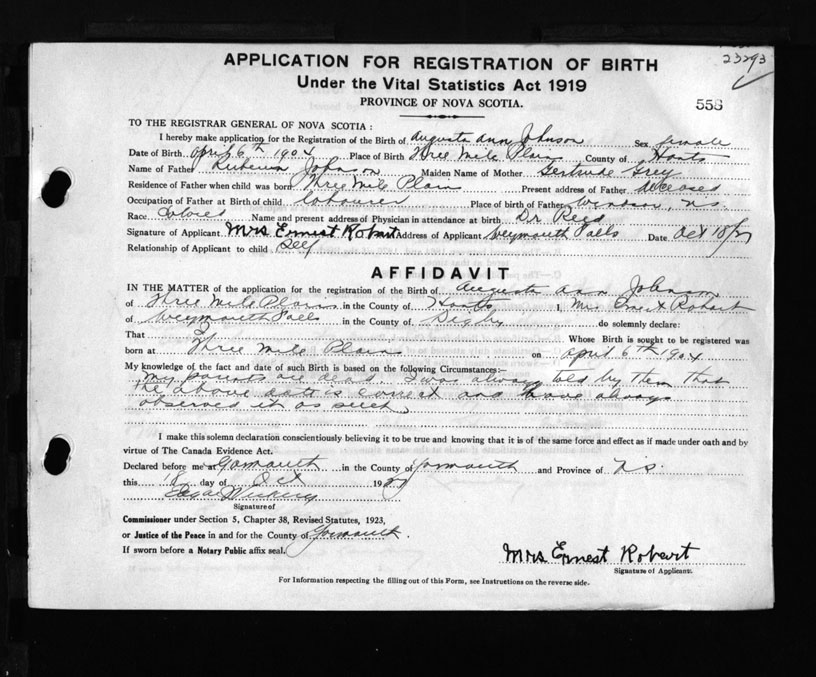 23293
APPLICATION FOR REGISTRATION OF BIRTH
Under the Vital Statistics Act 1919
PROVINCE OF NOVA SCOTIA.
558
TO THE REGISTRAR GENERAL OF NOVA SCOTIA :
I hereby make application for the Registration of the Birth of Augusta Ann Johnson Sex female
Date of Birth April 6th 1904 Place of Birth Three Mile Plains County of Hants
Name of Father Johnson Maiden Name of Mother Gertrude Grey
Residence of Father when child was born Three Mile Plain Present address of Father deceased
Occupation of Father at Birth of child labourer Place of birth of Father Windsor, N.S.
Race Colored Name and present address of Physician in attendance at birth Dr Reed
Signature of Applicant Mrs Ernest Robart Address of Applicant Weymouth Falls Date Oct 18/
Relationship of Applicant to child Self
AFFIDAVIT
IN THE MATTER of the application for the registration of the Birth of Augusta Ann Johnson
of Three Mile Plains in the County of Hants I, Mrs Ernest Robart
of Weymouth Falls in the County of Digby do solemnly declare:
That Whose Birth is sought to be registered was
born at Three Mile Plains on April 6th 1904
My knowledge of the fact and date of such Birth is based on the following Circumstances:—
My parents are dead I was always told by them that
the above date is correct and have always
observed it as such
I make this solemn declaration conscientiously believing it to be true and knowing that it is of the same force and effect as if made under oath and by
virtue of The Canada Evidence Act.
Declared before me at Yarmouth in the County of Yarmouth and Province of N.S.
this 18 day of Oct 19
Signature of
Commissioner under Section 5, Chapter 38, Revised Statutes, 1923,
or Justice of the Peace in and for the County of Yarmouth.
If sworn before a Notary Public affix seal.
Mrs Ernest Robart
Signature of Applicant.
For Information respecting the filling out of this Form, see Instructions on the reverse side.